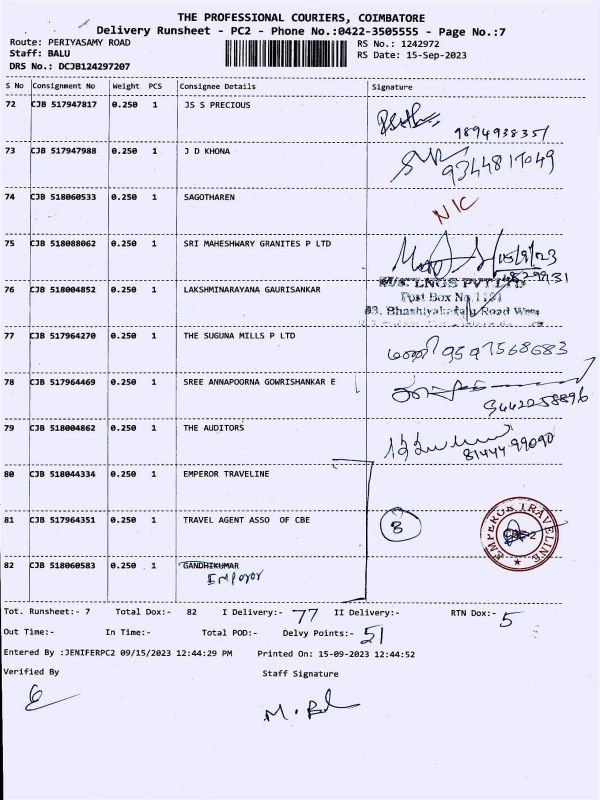 THE PROFESSIONAL COURIERS, COIMBATORE
Delivery Runsheet - PC2 - Phone No.:0422-3505555 - Page No.:7
Route: PERIYASAMY ROAD RS No.: 1242972
Staff: BALU RS Date: 15-Sep-2023
DRS No.: DCJB124297207
S No Consignment No Weight PCS Consignee Details Signature
72 CJB 517947817 0.250 1 JS S PRECIOUS
9894938351
73 CJB 517947988 0.250 1 J D KHONA
9344817049
74 CJB 518060533 0.250 1 SAGOTHAREN
N/C
75 CJB 518088062 0.250 1 SRI MAHESHWARY GRANITES P LTD
15/9/23
76 CJB 518004852 0.250 1 LAKSHMINARAYANA GAURISANKAR
M/s. LNGS PVT LTD
Post Box No.1191
83, Bhashyakaralu Road West
77 CJB 517964270 0.250 1 THE SUGUNA MILLS P LTD
9597568683
78 CJB 517964469 0.250 1 SREE ANNAPOORNA GOWRISHANKAR E
9442258896
79 CJB 518004862 0.250 1 THE AUDITORS
81444 99090
80 CJB 518044334 0.250 1 EMPEROR TRAVELINE
81 CJB 517964351 0.250 1 TRAVEL AGENT ASSO OF CBE
3
EMPEROR TRAVELINE
CBE-2
82 CJB 518060583 0.250 1 GANDHIKUMAR
Emperor
Tot. Runsheet:- 7 Total Dox:- 82 I Delivery:- 77 II Delivery:- RTN Dox:- 5
Out Time:- In Time:- Total POD:- Delvy Points:- 51
Entered By :JENIFERPC2 09/15/2023 12:44:29 PM Printed On: 15-09-2023 12:44:52
Verified By Staff Signature